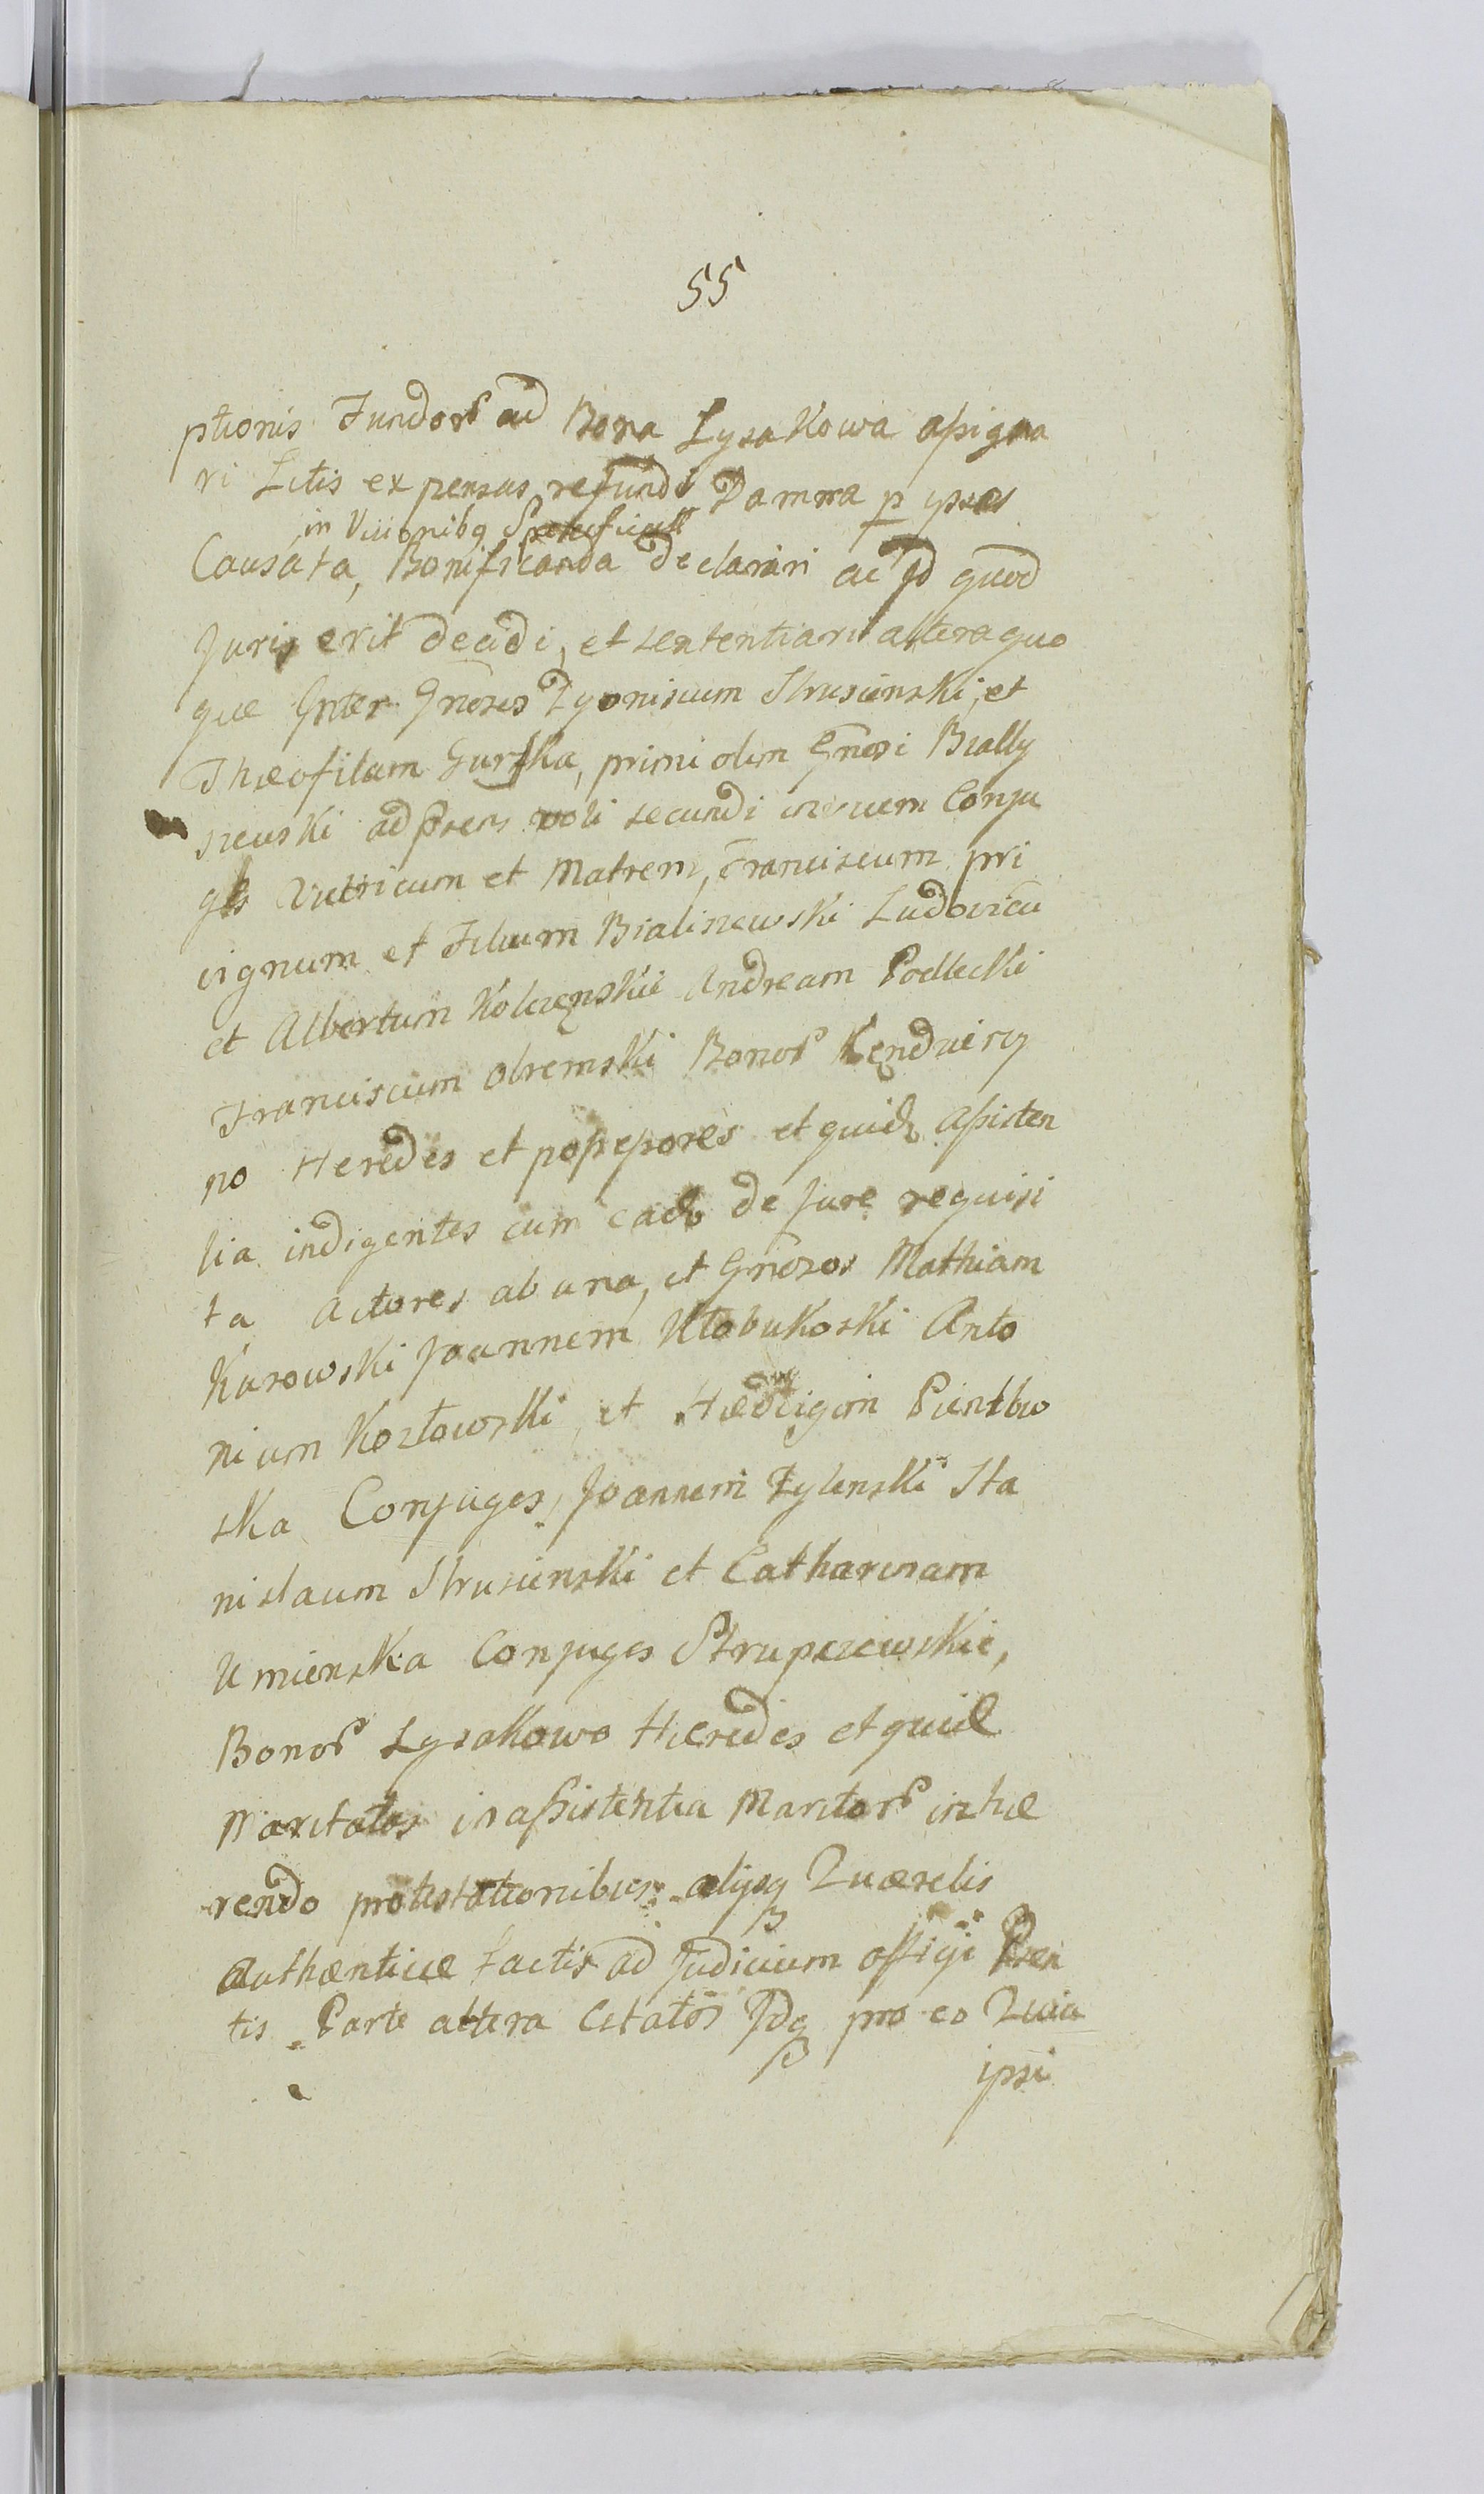 55
ptionis Fundor ad Bona Lysakowa assigna
ri Litis expensas refundi Damna p ipsos
in Visionibq Specificatt
Causata, Bonificanda declarari ac Id quod
Juris erit decidi, et sententiari altera quo
que Inter Gnosos Dyonisium Strusienski, et
Theofilam Gurska, primi olim Gnosi Bially
szewski ad prsens voti secundi invicem Conju
ges Vitricum et Matrem, Franciscum pri
vignum et Filium Bialiszewski Ludovicu
et Albertum Kolczenskie Andream Podlecki
Franciscum Obremski Bonor Kendzierzy
no Heredes et possessores et quid assisten
tia indigentes cum eadb de Jure requisi
ta Actores ab una, et Gnosos Mathiam
Kurowski Joannem Kłobukoski Anto
nium Kozłowski, et Hedvigim
ska Conjuges, Joannem Zylenski Sta
nislaum Strusienski et Catharinam
Umienska Conjuges Strupczewskie,
Bonor Lysakowo Hæredes et quid
Maritatas in assistentia Maritor inhæ
rendo protestationibus alijsq Quærelis
Authenticæ factis ad Judicium officij Præn
tis Parte altera Citatos Idq pro eo Quia
ipsi